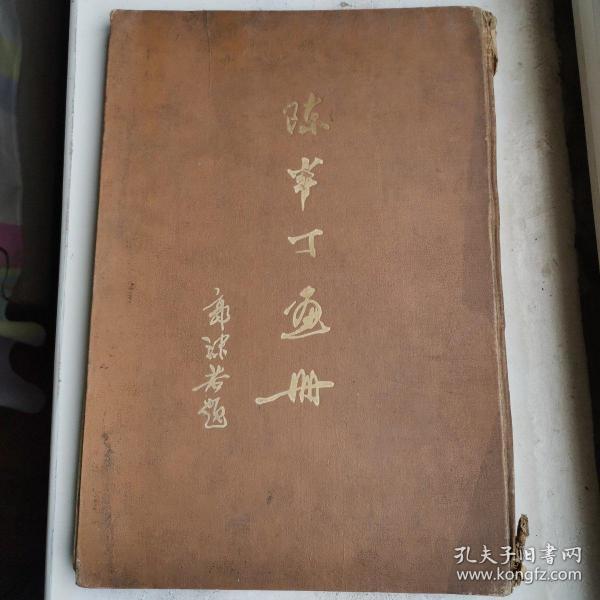 陈半丁画册
郭沫若题
孔夫子旧書网
www.kongfz.com